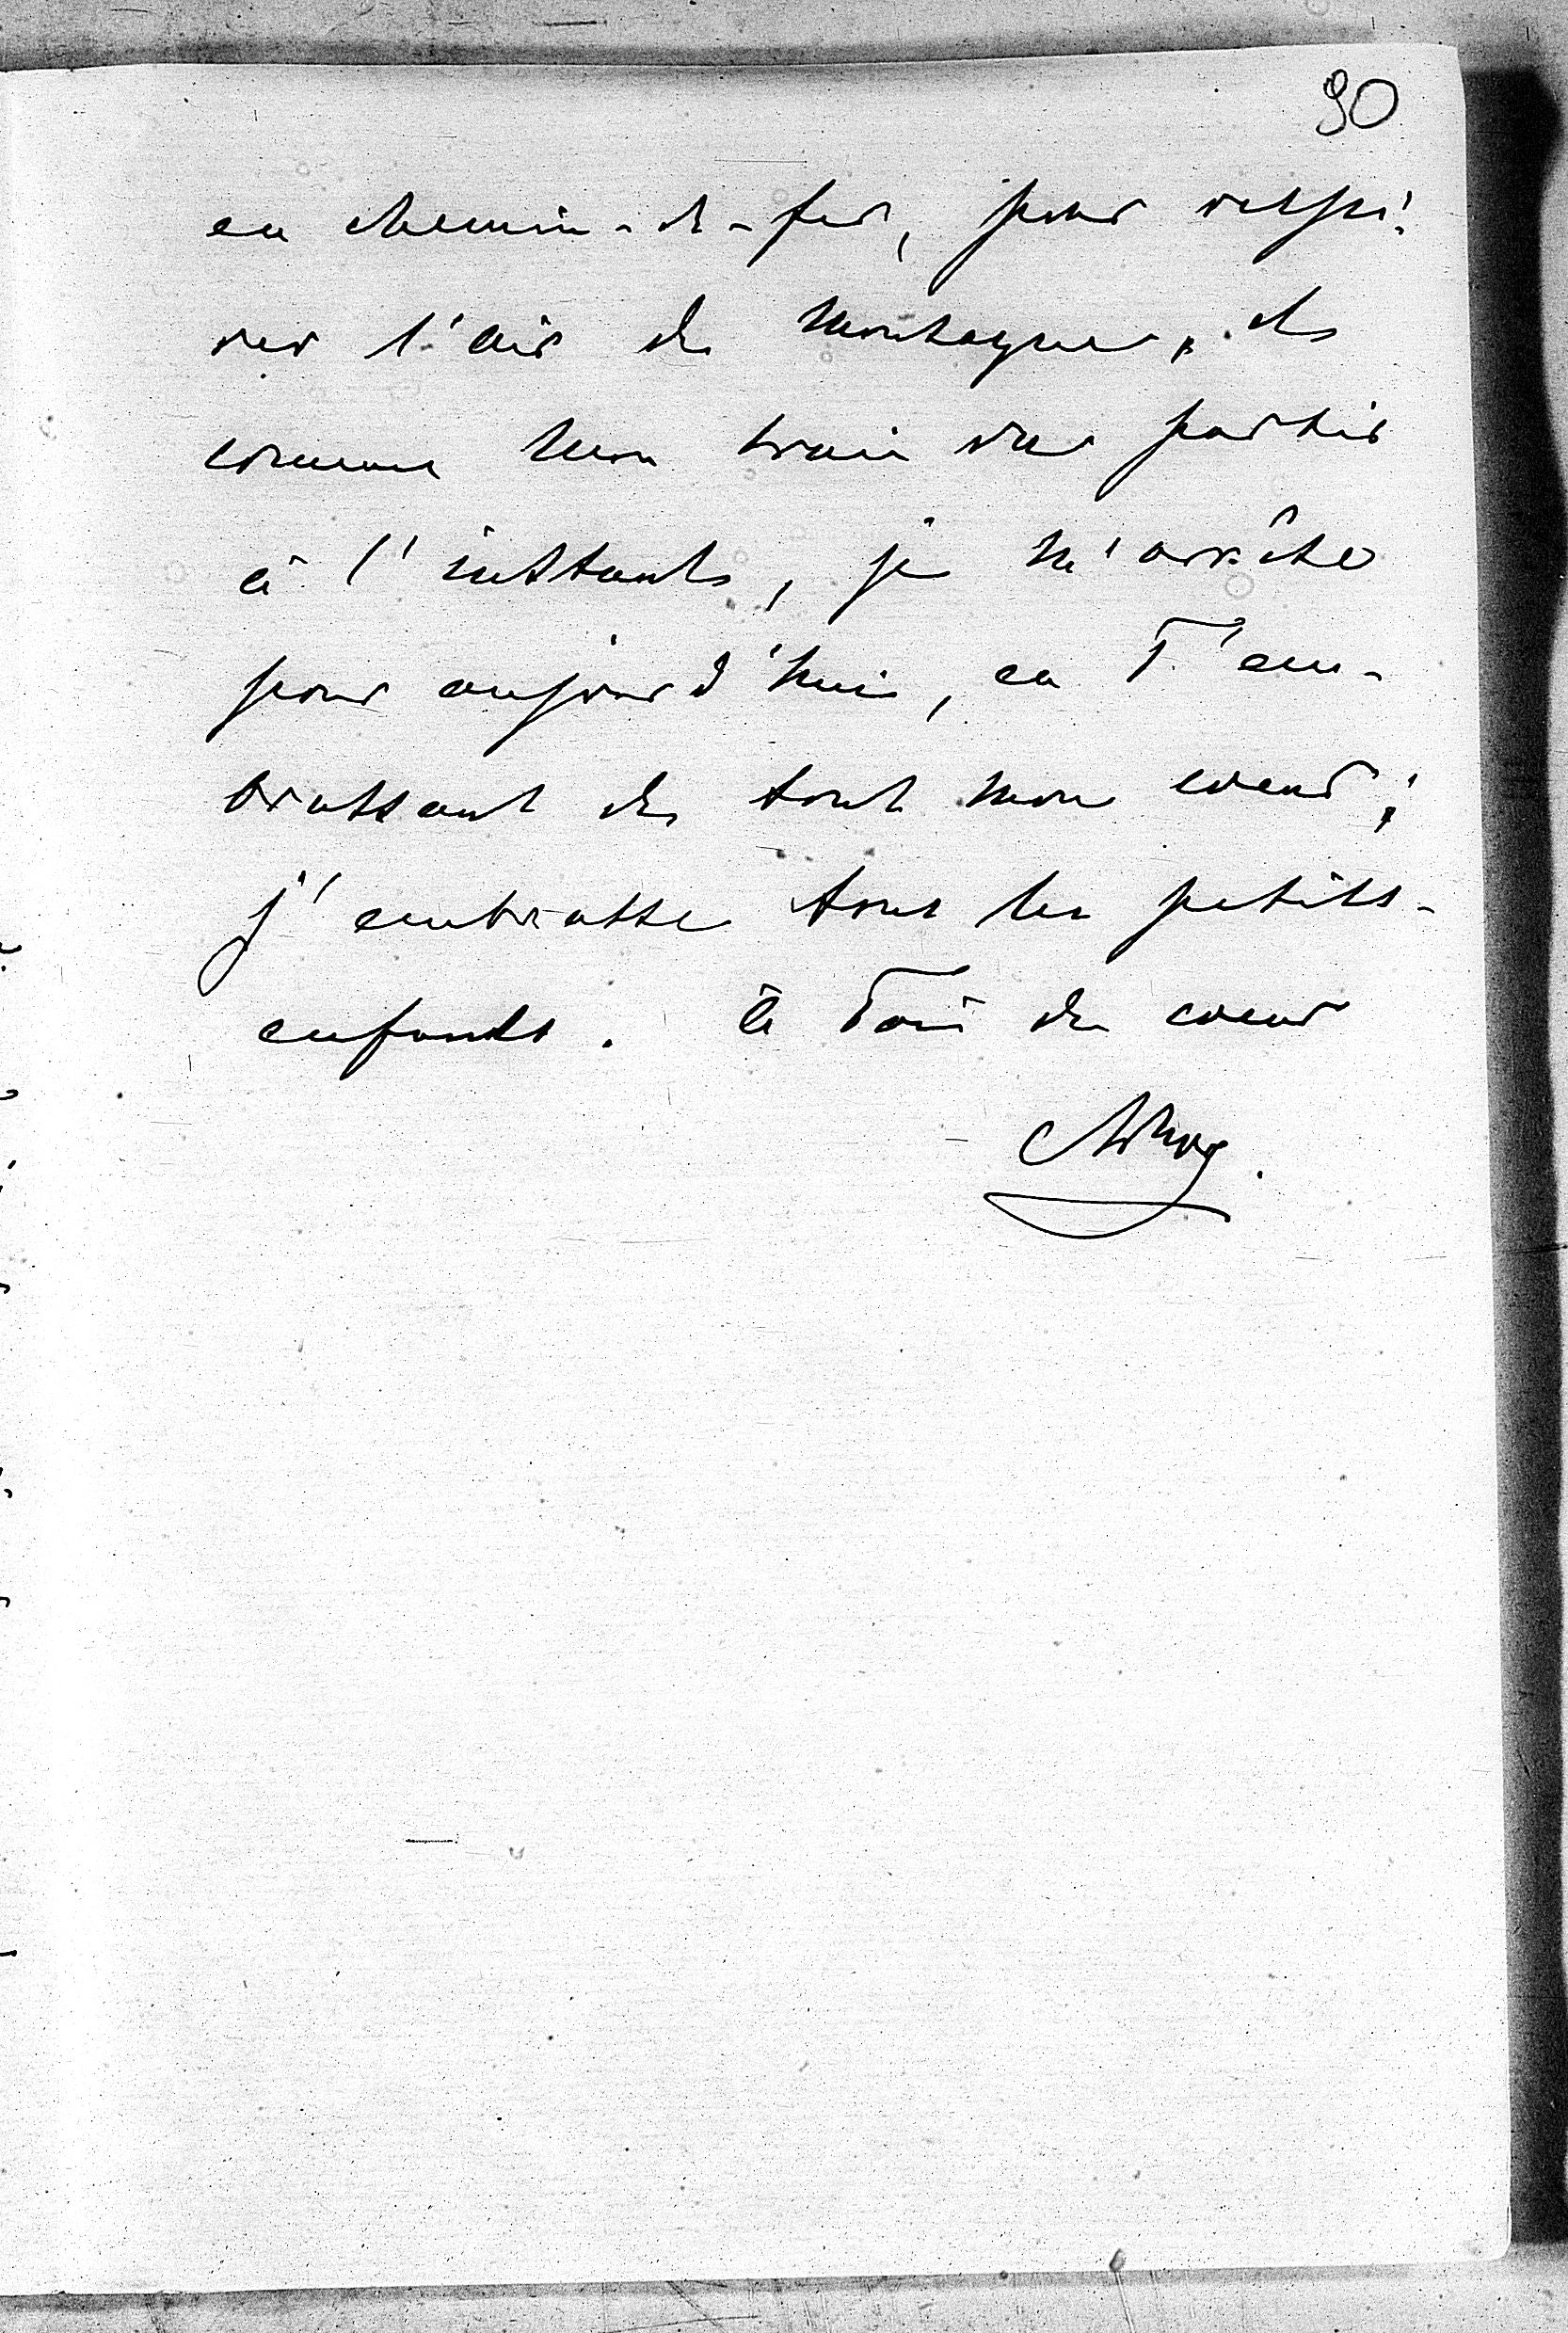 90
en chemin-de-fer, pour respi-
rer l'air de montagne, et
comme mon train va partir
à l'instant, je m'arrête
pour aujourd'hui, en T'em-
brassant de tout mon coeur;
j'embrasse tous les petits-
enfants. à Toi de coeur